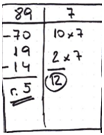 89 7
-70 10x7
19
-14 2x7
r.5 12